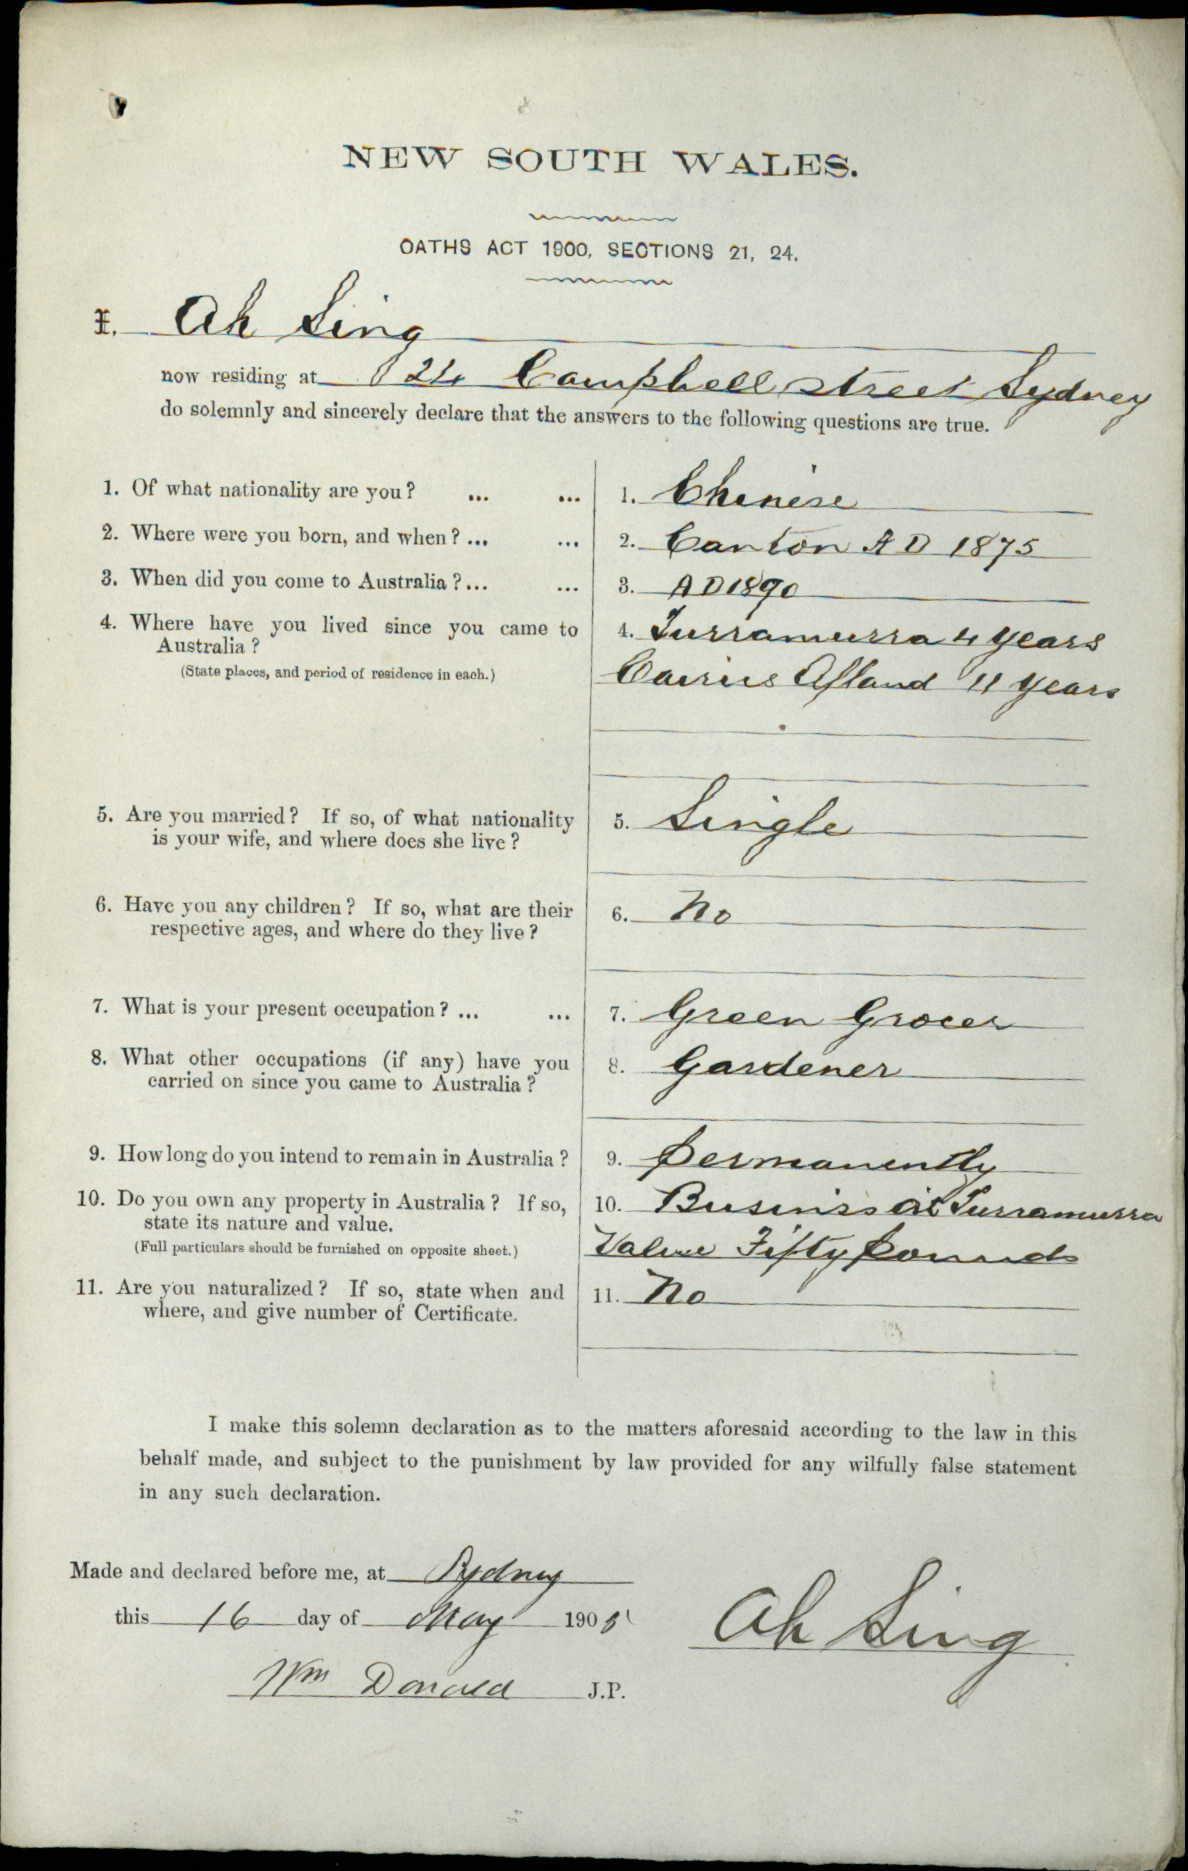 NEW SOUTH WALES.
OATHS ACT 1900, SECTIONS 21, 24.
I, Ah Sing
now residing at 124 Campbell street Sydney
do solemnly and sincerely declare that the answers to the following questions are true.
1. Of what nationality are you? ... ... 1. Chinese
2. Where were you born, and when? ... ... 2. Canton AD 1875
3. When did you come to Australia? ... ... 3. AD 1890
4. Where have you lived since you came to 4. Turramurra 4 years
Australia?
(State places, and period of residence in each.) Cairns 11 years
5. Are you married? If so, of what nationality 5. Single
is your wife, and where does she live?
6. Have you any children? If so, what are their 6. No
respective ages, and where do they live?
7. What is your present occupation? ... ... 7. Green Grocer
8. What other occupations (if any) have you 8. Gardener
carried on since you came to Australia?
9. How long do you intend to remain in Australia? 9. Permanently
10. Do you own any property in Australia? If so, 10. Business at Turramurra
state its nature and value.
(Full particulars should be furnished on opposite sheet.) Value Fifty pounds
11. Are you naturalized? If so, state when and 11. No
where, and give number of Certificate.
I make this solemn declaration as to the matters aforesaid according to the law in this
behalf made, and subject to the punishment by law provided for any wilfully false statement
in any such declaration.
Made and declared before me, at Sydney
this 16 day of May 1905
Ah Sing
Wm Donald J.P.